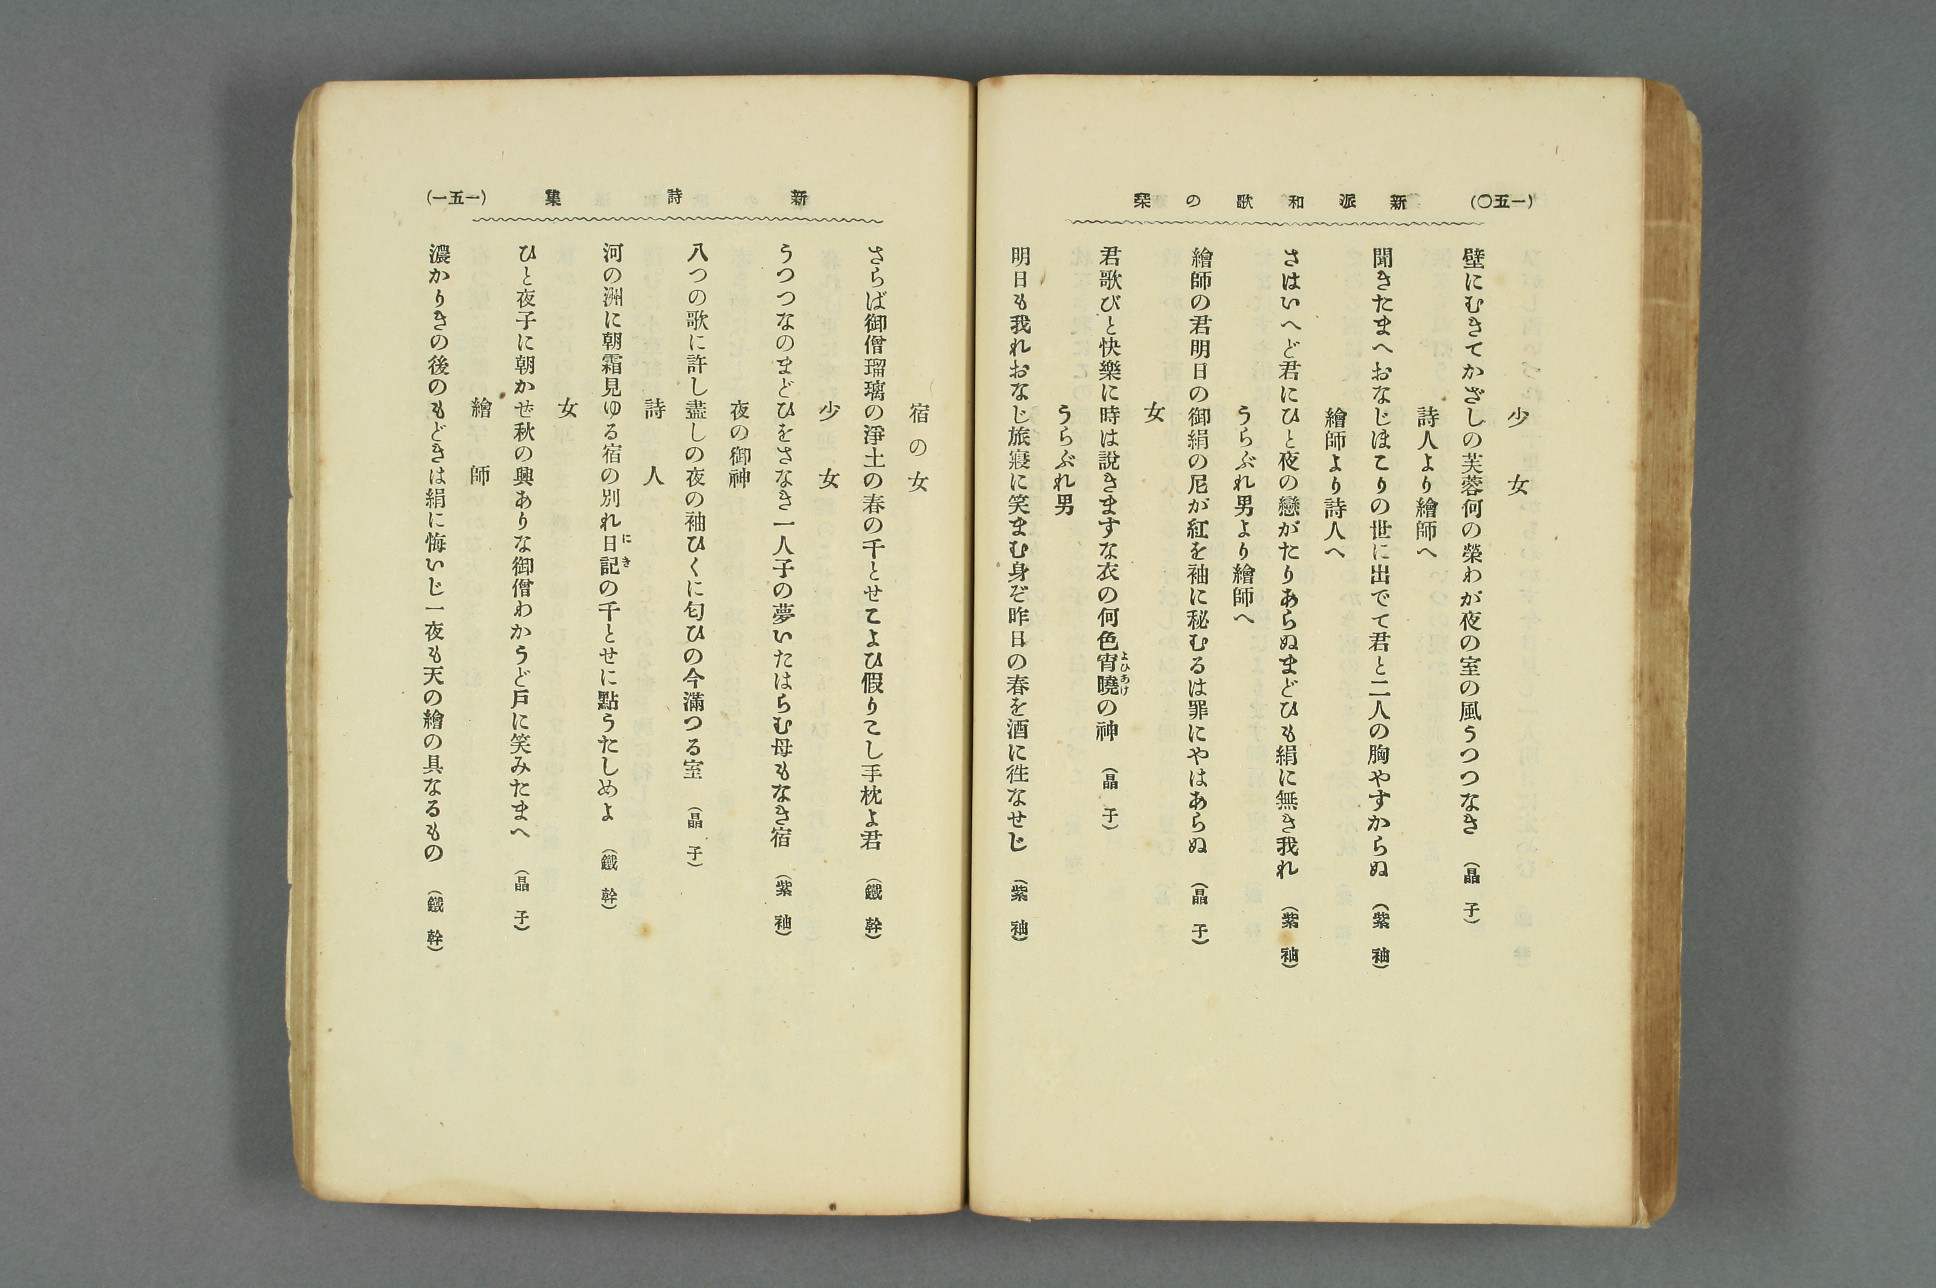 (一五〇) 新派和歌の栞
少女
壁にむきてかざしの芙蓉何の榮わが夜の室の風うつつなき (晶子)
詩人より繪師へ
聞きたまへおなじほこりの世に出でて君と二人の胸やすからぬ (紫袖)
繪師より詩人へ
さはいへど君にひと夜の戀がたりあらぬまどひも絹に無き我れ (紫袖)
うらぶれ男より繪師へ
繪師の君明日の御絹の尼が紅を袖に秘むるは罪にやはあらぬ (晶子)
女
君歌びと快樂に時は説きますな衣の何色宵曉の神 (晶子)
よひあけ
うらぶれ男
明日も我れおなじ旅寢に笑まむ身ぞ昨日の春を酒に徃なせじ (紫袖)
新詩集 (一五一)
宿の女
さらば御僧瑠璃の淨土の春の千とせこよひ假りこし手枕よ君 (鐵幹)
少女
うつつなのまどひをさなき一人子の夢いたはらむ母もなき宿 (紫袖)
夜の御神
八つの歌に許し盡しの夜の袖ひくに匂ひの今滿つる室 (晶子)
詩人
河の洲に朝霜見ゆる宿の別れ日記の千とせに點うたしめよ (鐵幹)
にき
女
ひと夜子に朝かぜ秋の興ありな御僧わかうど戸に笑みたまへ (晶子)
繪師
濃かりきの後のもどきは絹に悔いじ一夜も天の繪の具なるもの (鐵幹)